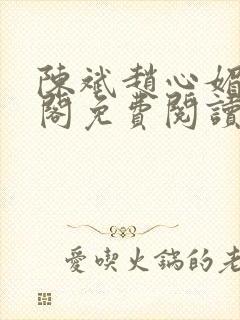 陳斌趙心媚
閣免費閱讀
愛喫火鍋的老